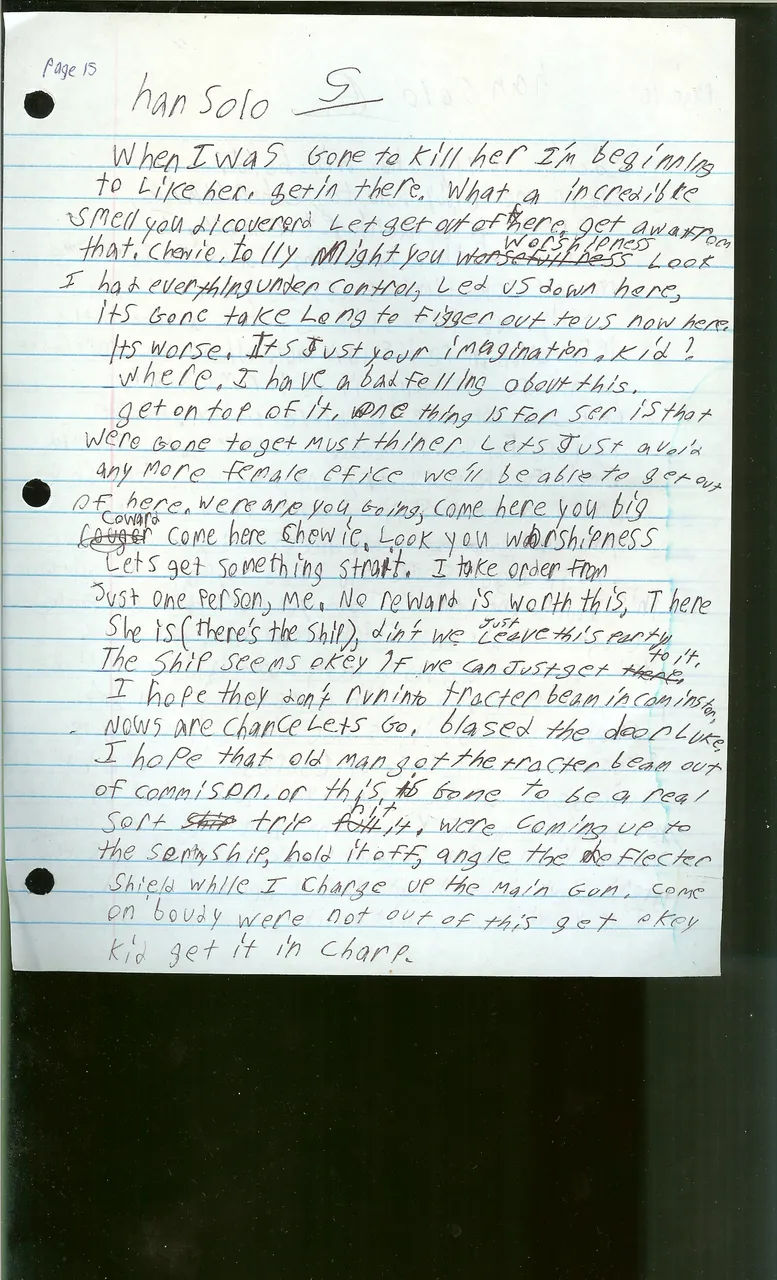 Page 15
han Solo 5
When I was Gone to kill her I'm beginning
to Like her. get in there. What a incredible
smell you dicovererd Let get out of here. get awayfrom
that. Chewie, to lly Might you worsefullness worshipness Look
I had everything under control, Led us down here,
its Gone take Long to Figger out to us now here.
Its worse. Its Just your imagination, kid?
Where. I have a bad felling about this.
get on top of it. One thing is for ser is that
were Gone to get must thiner. Lets Just avoid
any more female efice we'll be able to get out
of here. Were are you Going, come here you big
Coward come here Chewie. Look you worshipness
Lets get something strait. I take order from
Just one person, me. No reward is worth this, There
She is (there's the ship), din't we just Leave this party
The Ship seems okey if we can Just get there to it.
I hope they don't run into tracter beam in
Nows are chance Lets Go. blased the door Luke,
I hope that old man got the tracter beam out
of commison. or this is Gone to be a real
sort ship trip hit it. were coming up to
the ship, hold it off, angle the deflecter
Shield while I charge up the Main Gun. come
on boudy were not out of this get okey
Kid get it in Charp.